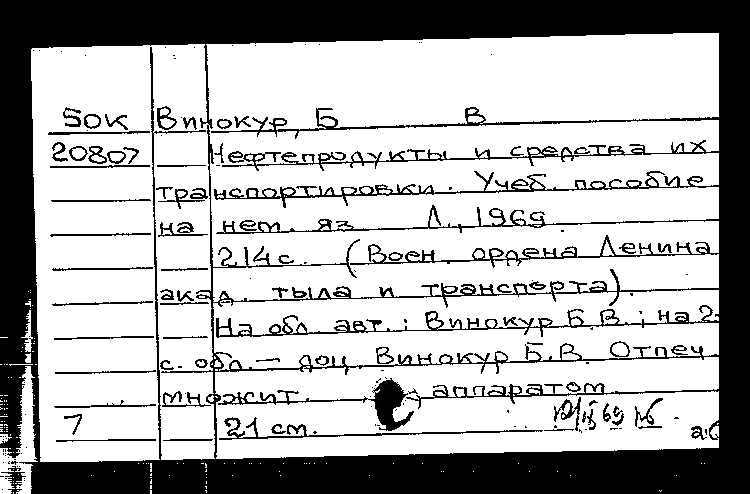 50К Винокур, Б В
20807 Нефтепродукты и средства их
транспортировки. Учеб. пособие
на нем. яз Л., 1969
214 с. (Воен. ордена Ленина
акад. тыла и транспорта).
На обл. авт.: Винокур Б.В.; на 2-
с. обл. — доц. Винокур Б.В. Отпеч
множит. аппаратом.
7 21 см.